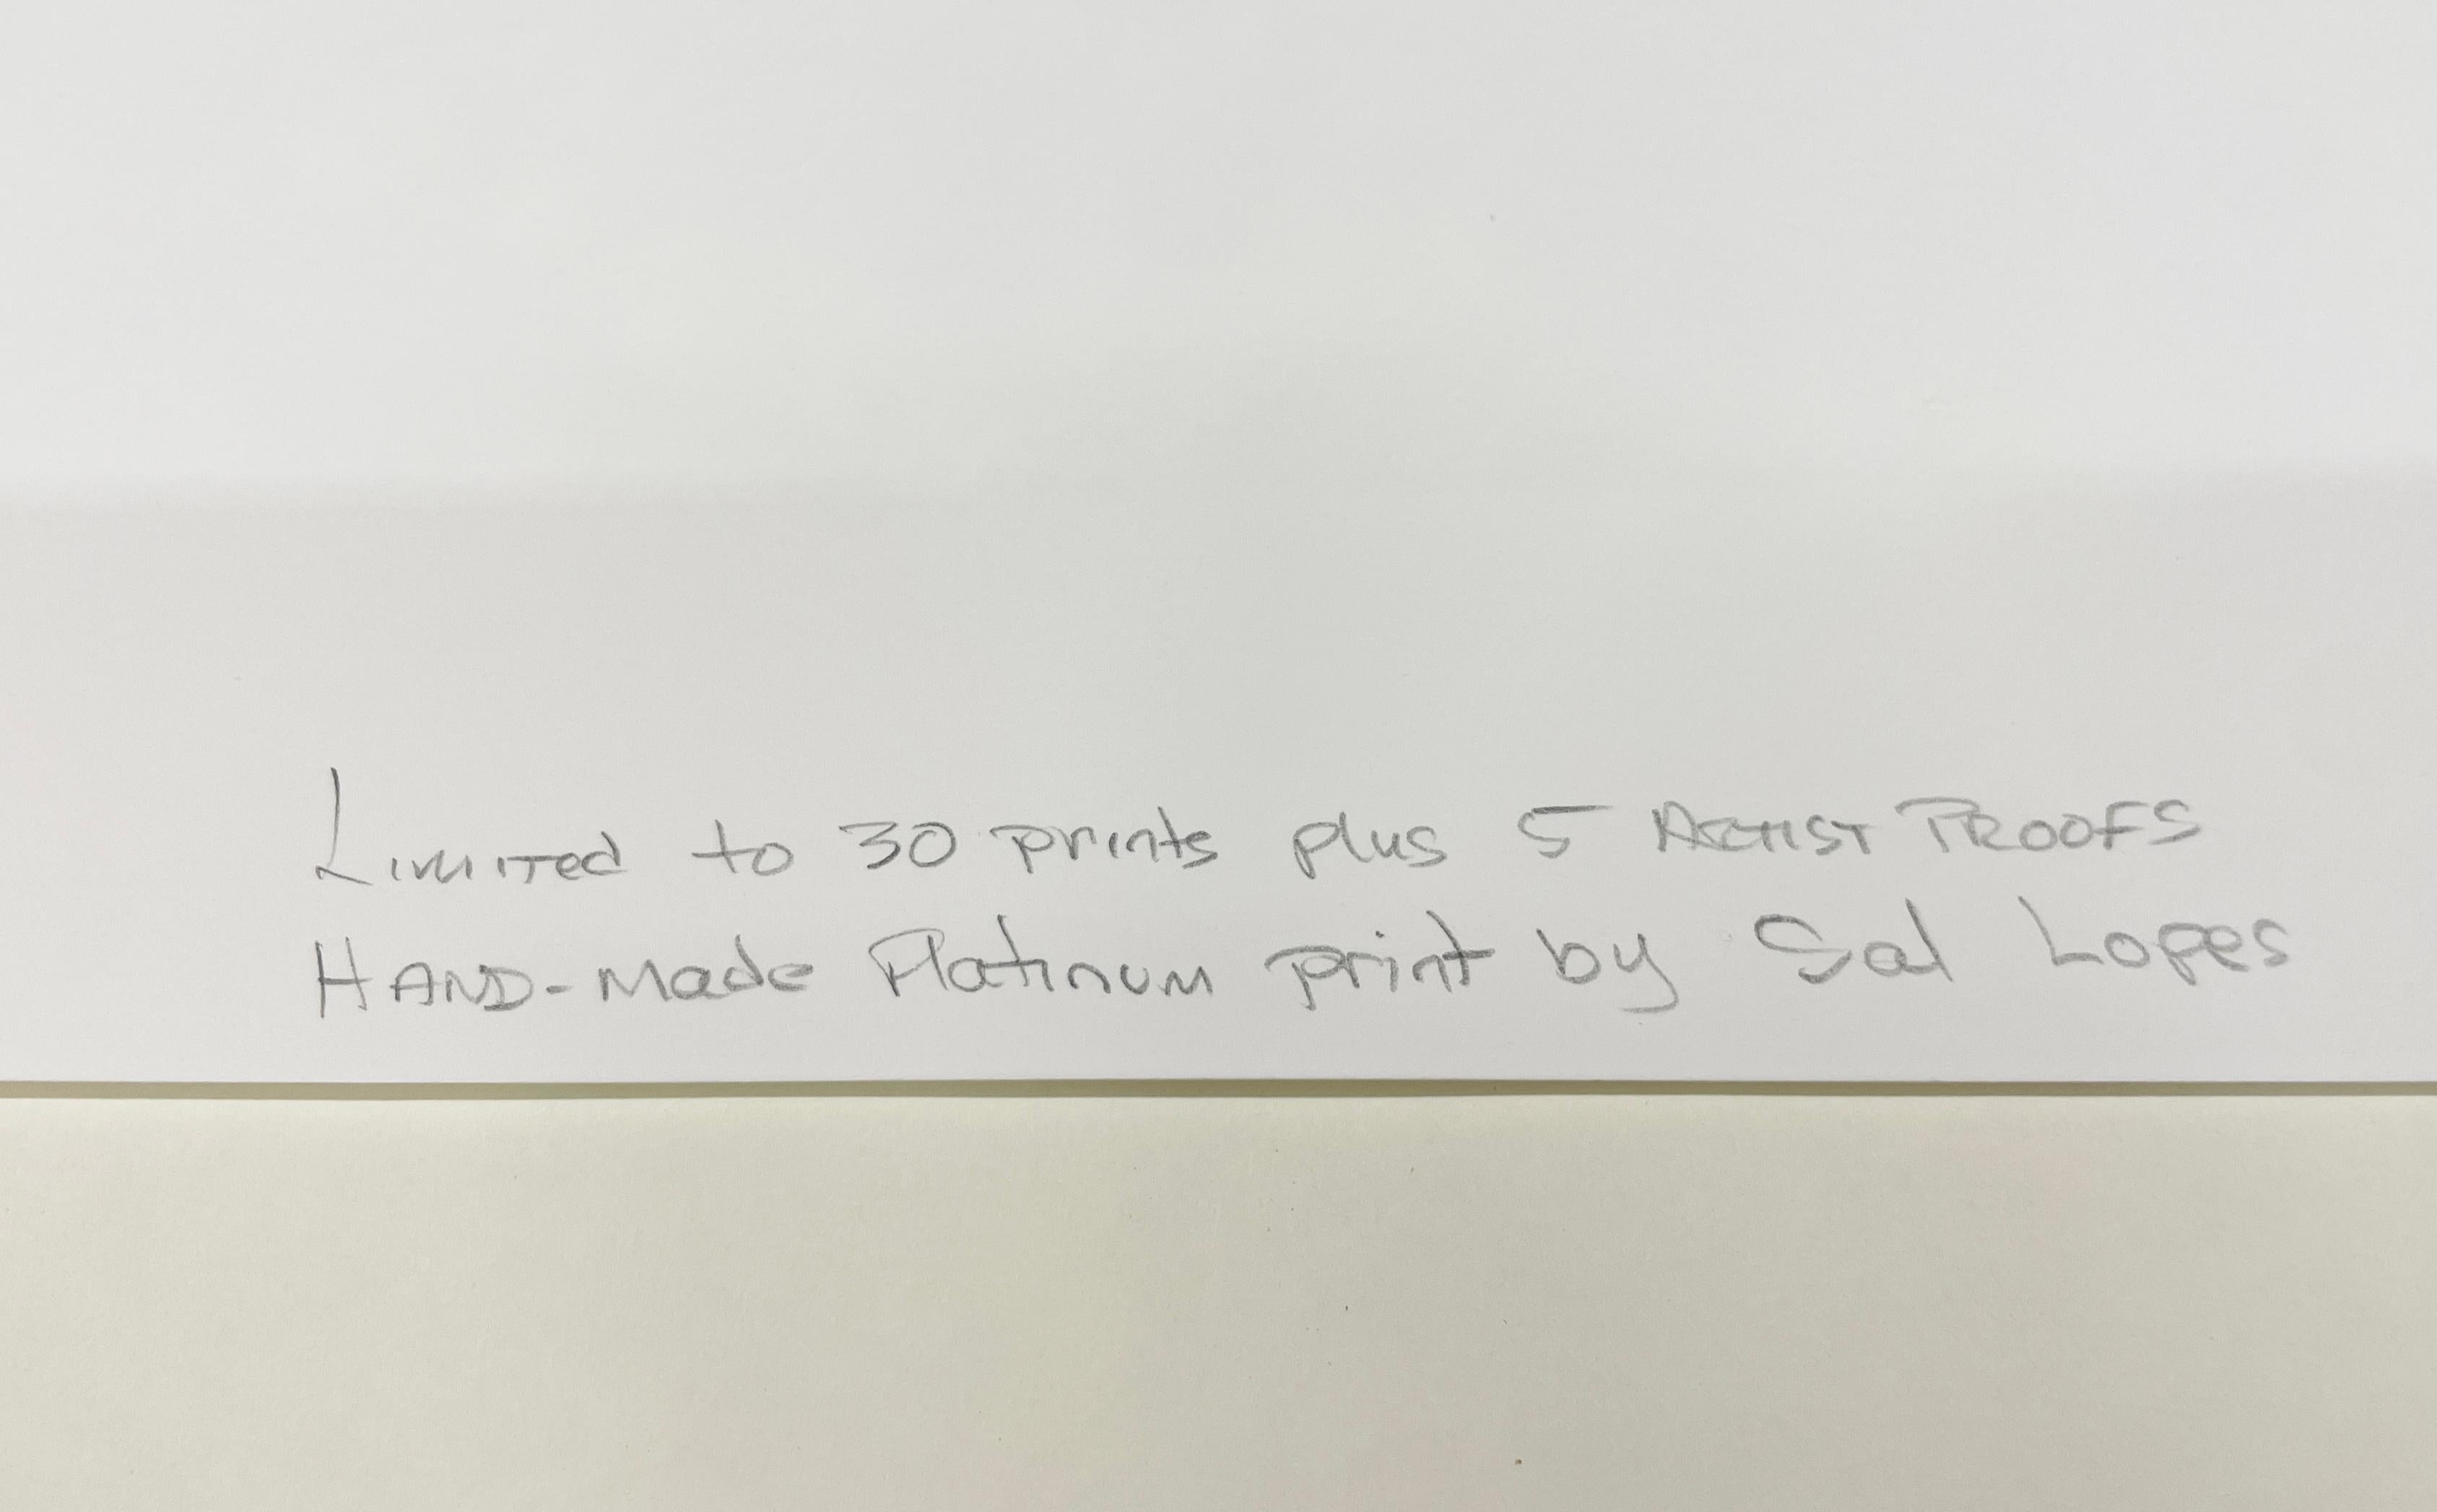 Limited to 30 prints plus 5 Artist PROOFS
HAND-Made Platinum print by Sal Lopes